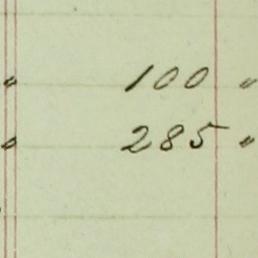 " 100 "
" 285 "